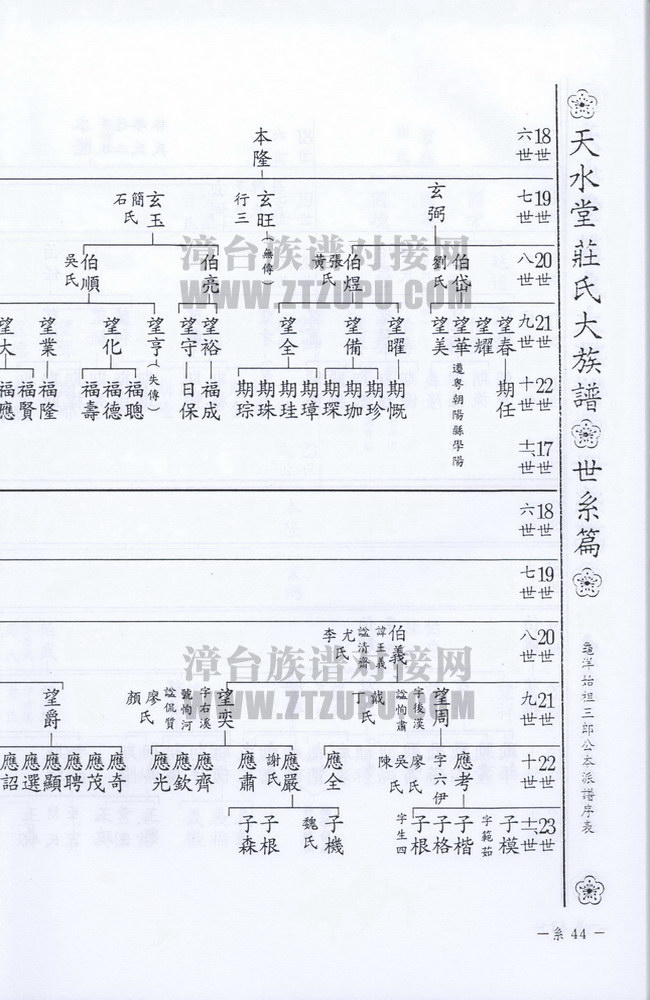 天水堂莊氏大族譜 世系篇
龜洋始祖三郎公本派譜序表
18世 六世
本隆
19世 七世
玄弼
玄旺 行三 (無傳)
玄玉 簡氏 石
20世 八世
伯岱 劉氏
伯煜 張氏 黃
伯亮
伯順 吳氏
21世 九世
望春
望耀
望華 遷粵朝陽縣學陽
望美
望曜
望備
望全
望裕
望守
望亨 (失傳)
望化
望業
望大
22世 十世
期任
期慨
期珍
期珈
期琛
期璋
期珪
期珠
期琮
福成
日保
福聰
福德
福壽
福隆
福賢
福應
17世
18世 六世
19世 七世
20世 八世
伯義 諱王義 謚清齋 尤氏 李
21世 九世
望周 字後漢 謚恂肅 戴氏 丁
望奕 字右溪 號恂河 謚侃質 廖氏 顏
望爵
22世 十世
應考 字六伊 廖氏 吳氏 陳
應全
應嚴 謝氏
應肅
應齊
應欽
應光
應奇
應茂
應聘
應顯
應選
應詔
23世
子模 字範茹
子楷
子格
子根 字生四
子機 魏氏
子根
子森
漳台族谱对接网
WWW.ZTZUPU.COM
漳台族谱对接网
WWW.ZTZUPU.COM
一系 44 一